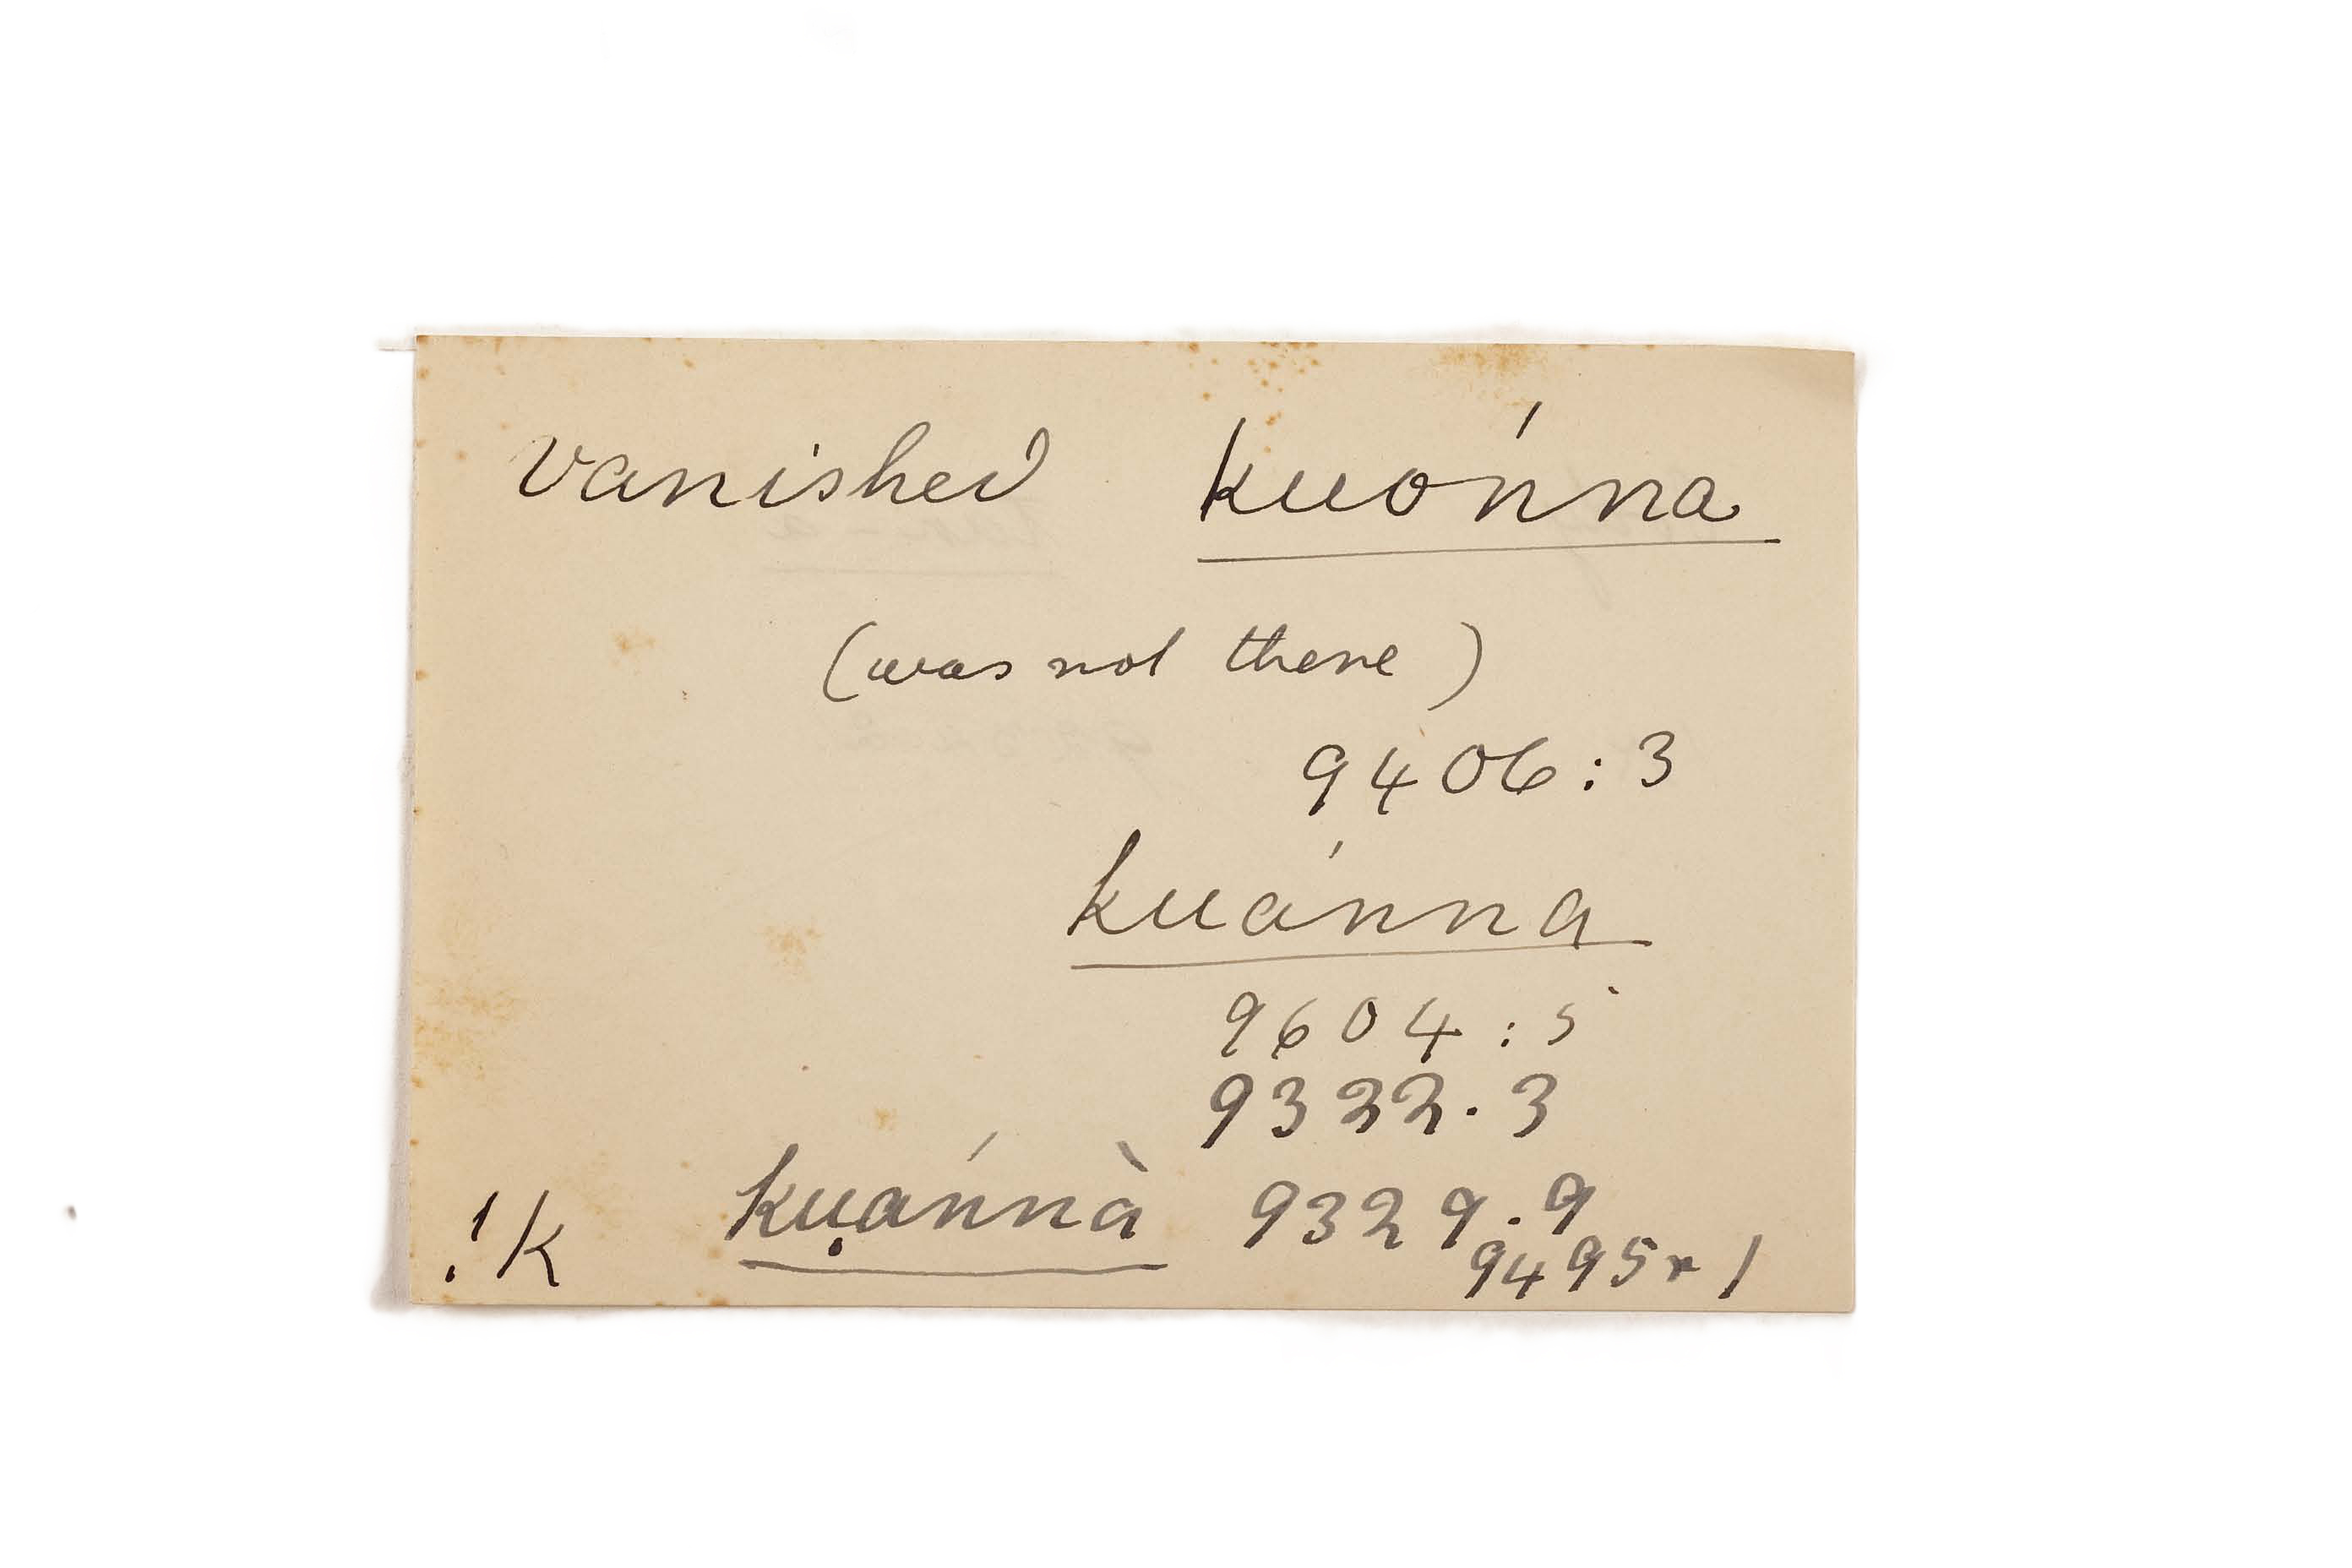 vanished kuónna
(was not there)
9406:3
kuánna
9604:5
9322.3
!k kụánnà 9329.9
9495r1